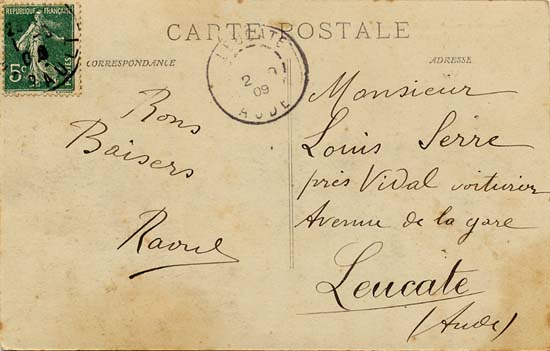 RÉPUBLIQUE FRANÇAISE
5c
CARTE POSTALE
CORRESPONDANCE
ADRESSE
LEUCATE
2
09
AUDE
Bons
Baisers
Raoul
Monsieur
Louis Serre
près Vidal voiturier
Avenue de la gare
Leucate
(Aude)